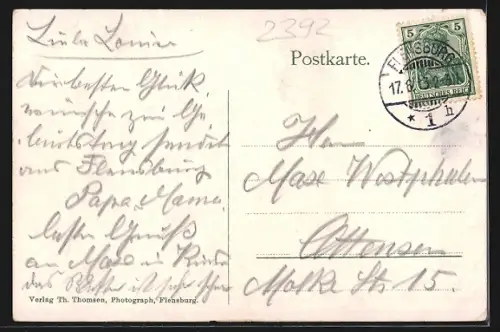 2392
Liebe Louise
Die besten Glück
wünsche zum Ge
burtstag sendet
aus Flensburg
Papa, Mama.
besten Gruß
an Max
das Wetter ist sehr schön
Verlag Th. Thomsen, Photograph, Flensburg.
Postkarte.
5 5
DEUTSCHES REICH
FLENSBURG
17.6
* 1 h
Herrn
Max Westphalen
Ottensen
Molke Str 15.